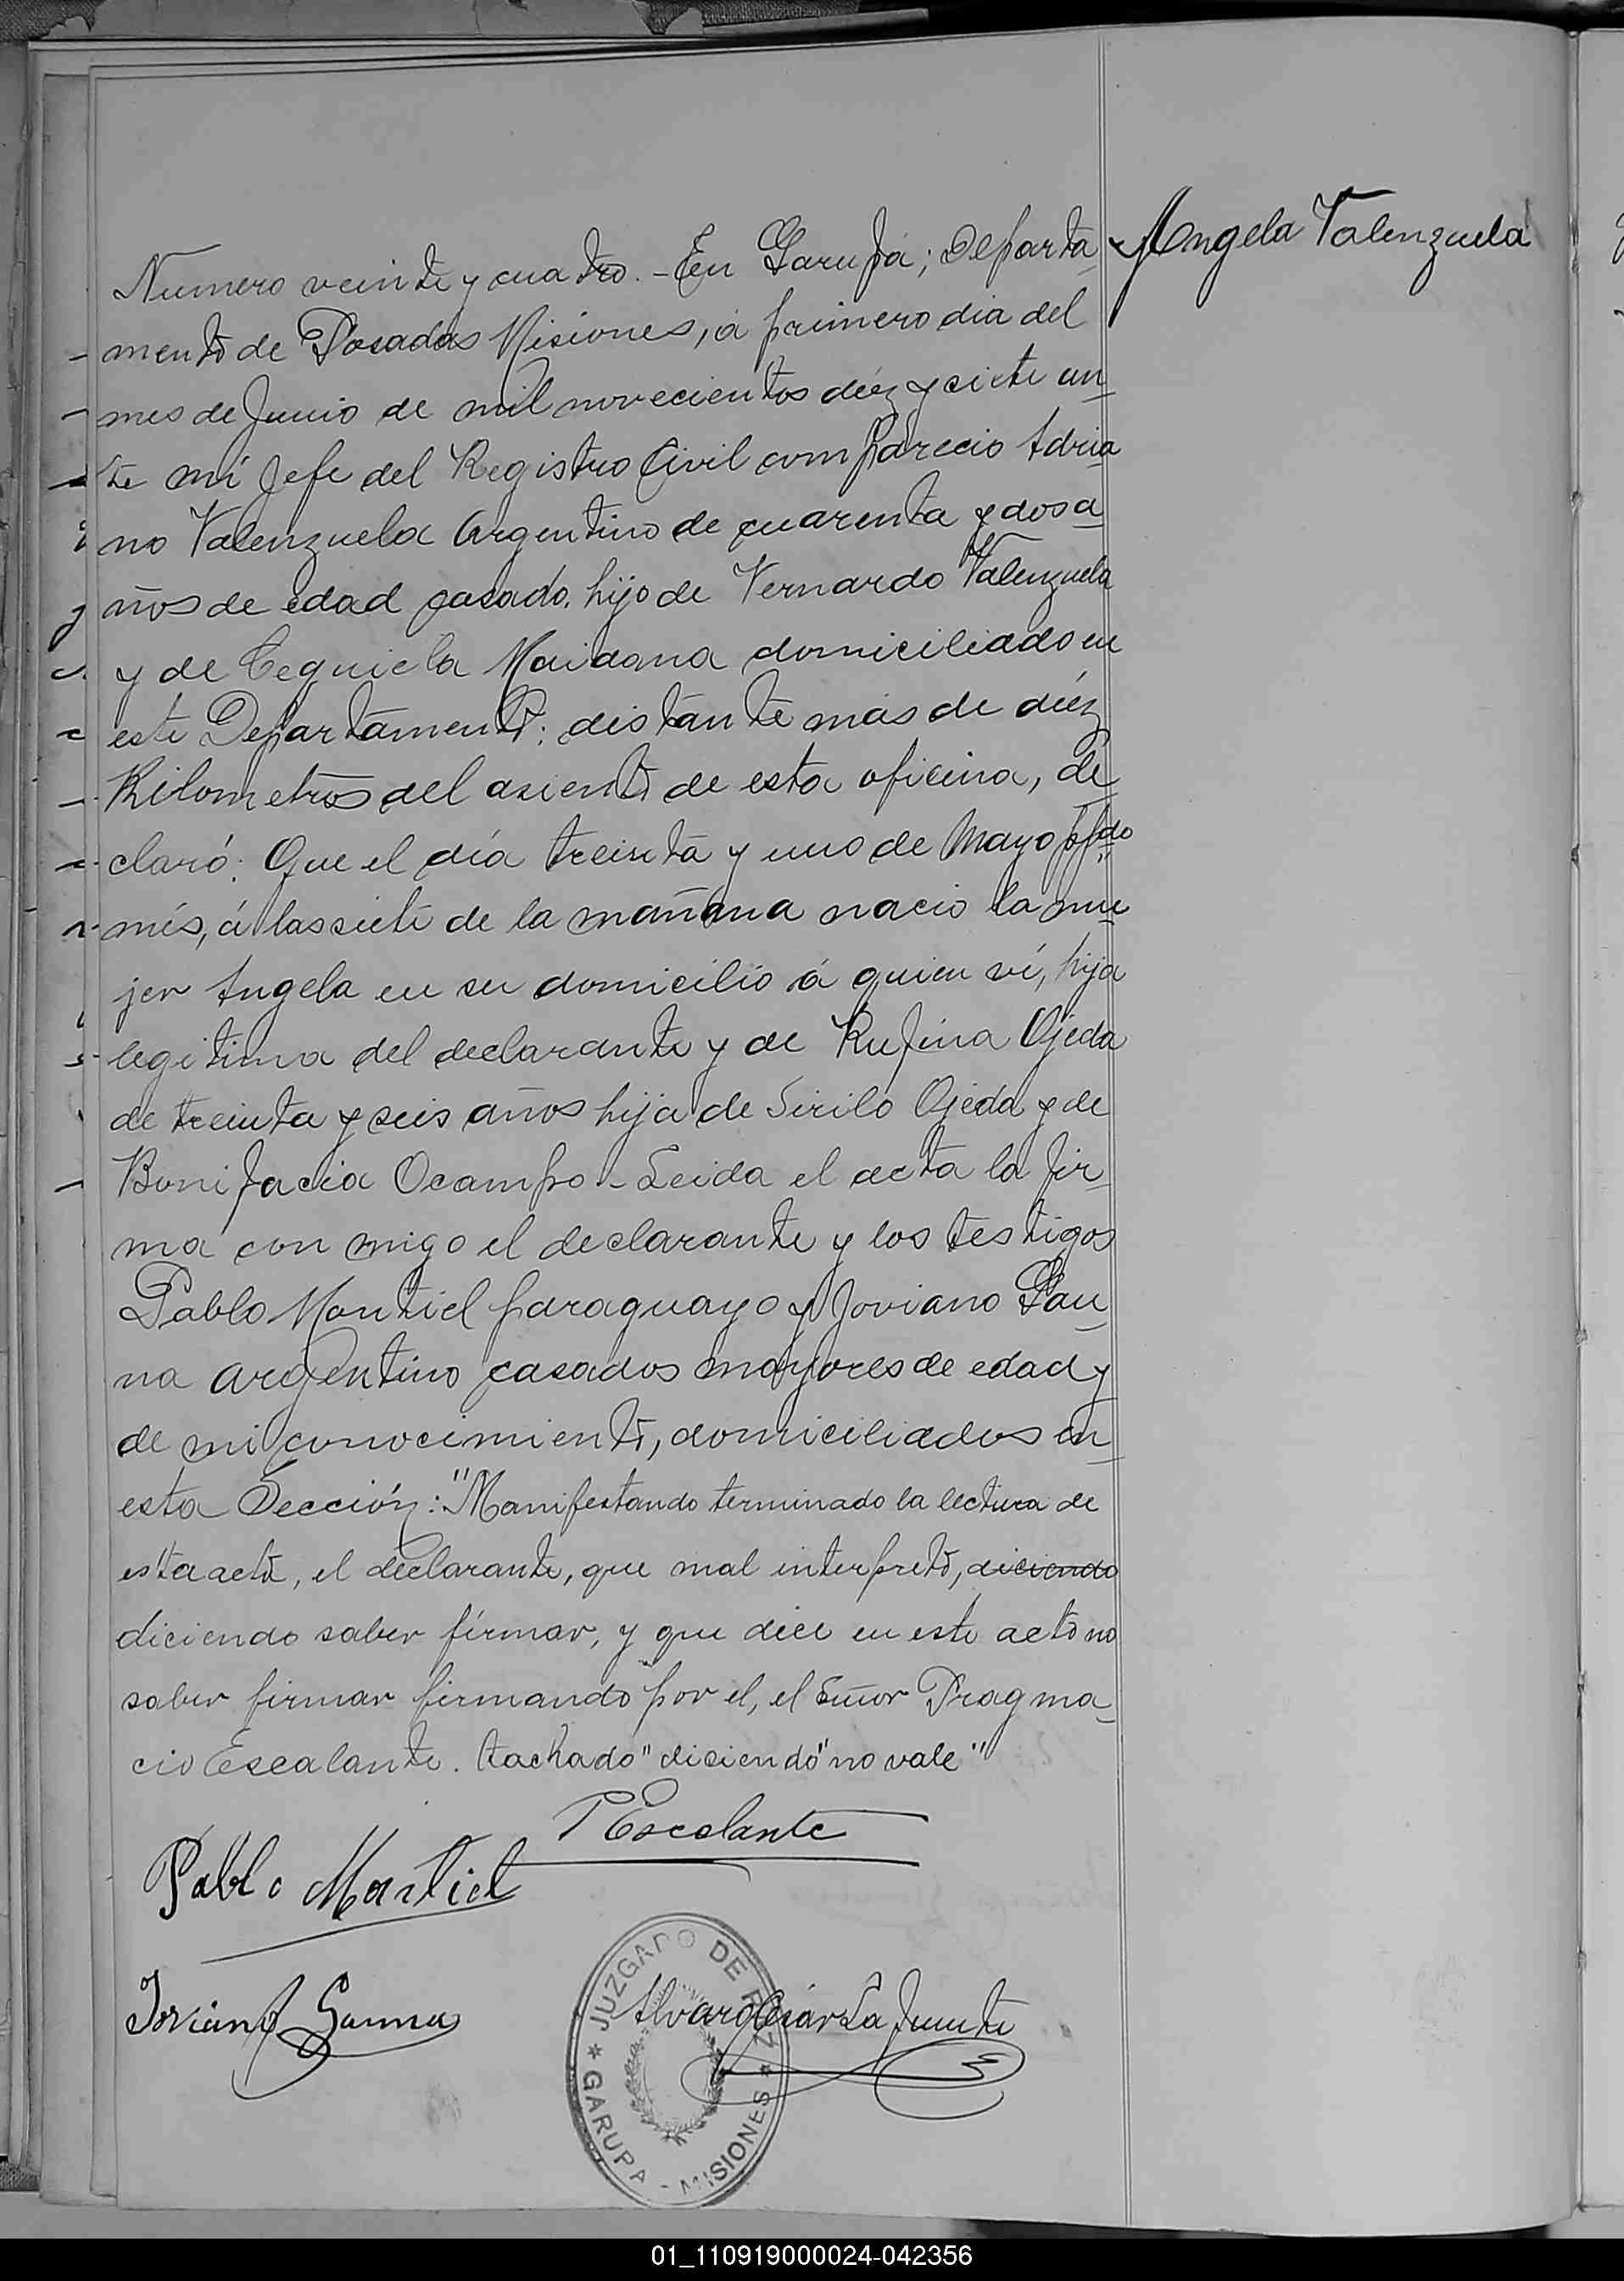 Angela Valenzuela
Numero veinte y cuatro.- En Garupá; Departa
mento de Posadas Misiones, á primero dia del
mes de Junio de mil novecientos diéz y siete an
te mí Jefe del Registro Civil comparecio Adria
no Valenzuela Argentino de cuarenta y dos a
ños de edad casado, hijo de Vernardo Valenzuela
y de Cequiela Maidana domiciliado en
este Departamento: distante más de diéz
Kilometros del asiento de esta oficina, de
claró: Que el día treinta y uno de Mayo ppdo
més, á las siete de la mañana nacio la mu
jer Angela en su domicilio á quien ví, hija
legitima del declarante y de Rufina Ojeda
de treinta y seis años hija de Sirilo Ojeda y de
Bonifacia Ocampo.- Leida el acta la fir
ma con migo el declarante y los testigos
Pablo Montiel paraguayo y Joviano Gau
na argentino casados mayores de edad y
de mi conocimiento, domiciliados en
esta Sección: "Manifestando terminado la lectura de
esta acta, el declarante, que mal interpretó, diciendo
diciendo saber firmar, y que dice en este acto no
saber firmar firmando por el, el Señor Pragma
cio Escalante. tachado "disiendo" no vale"
P Escalante
Pablo Montiel
Joviano Gauna
Alvaro César La Fuente
JUZGADO DE PAZ
* GARUPA - MISIONES *
01_110919000024-042356